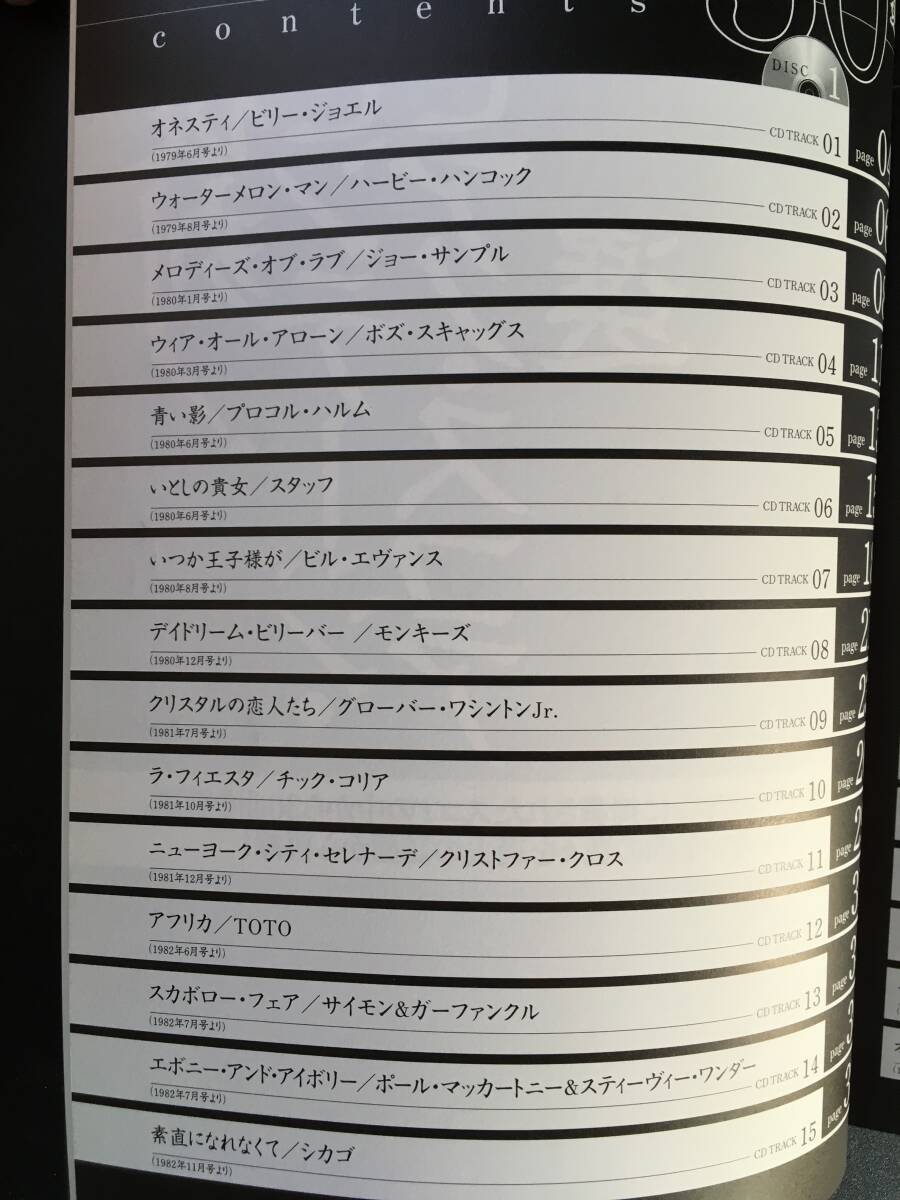 contents
DISC 1
オネスティ／ビリー・ジョエル
(1979年6月号より)
CD TRACK 01
page
ウォーターメロン・マン／ハービー・ハンコック
(1979年8月号より)
CD TRACK 02
page
メロディーズ・オブ・ラブ／ジョー・サンプル
(1980年1月号より)
CD TRACK 03
page
ウィア・オール・アローン／ボズ・スキャッグス
(1980年3月号より)
CD TRACK 04
page
青い影／プロコル・ハルム
(1980年6月号より)
CD TRACK 05
page
いとしの貴女／スタッフ
(1980年6月号より)
CD TRACK 06
page
いつか王子様が／ビル・エヴァンス
(1980年8月号より)
CD TRACK 07
page
デイドリーム・ビリーバー ／モンキーズ
(1980年12月号より)
CD TRACK 08
page
クリスタルの恋人たち／グローバー・ワシントンJr.
(1981年7月号より)
CD TRACK 09
page
ラ・フィエスタ／チック・コリア
(1981年10月号より)
CD TRACK 10
page
ニューヨーク・シティ・セレナーデ／クリストファー・クロス
(1981年12月号より)
CD TRACK 11
page
アフリカ／TOTO
(1982年6月号より)
CD TRACK 12
page
スカボロー・フェア／サイモン&ガーファンクル
(1982年7月号より)
CD TRACK 13
page
エボニー・アンド・アイボリー／ポール・マッカートニー&スティーヴィー・ワンダー
(1982年7月号より)
CD TRACK 14
page
素直になれなくて／シカゴ
(1982年11月号より)
CD TRACK 15
page